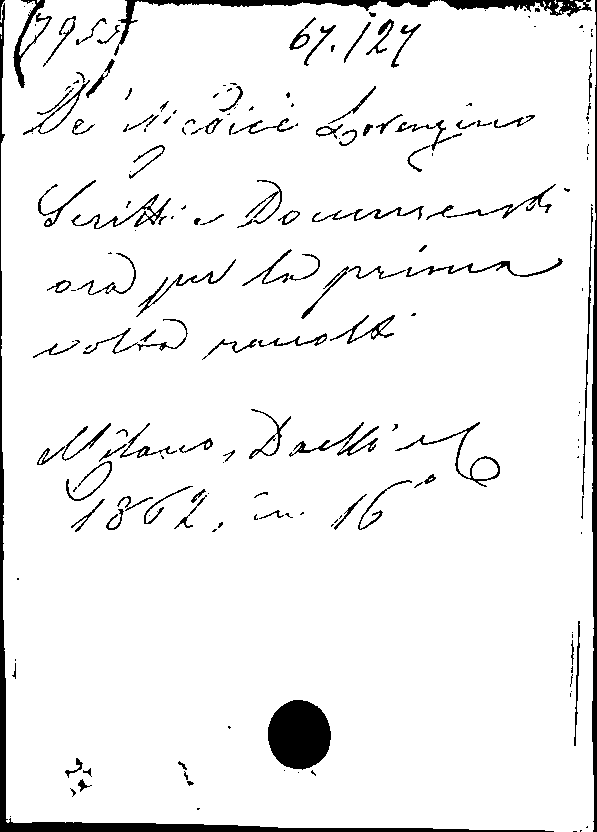 (7955) 67.127
De' Medici Lorenzino
Scritti e Documenti
ora per la prima
volta raccolti
Milano, Daelli e C
1862, in 16°